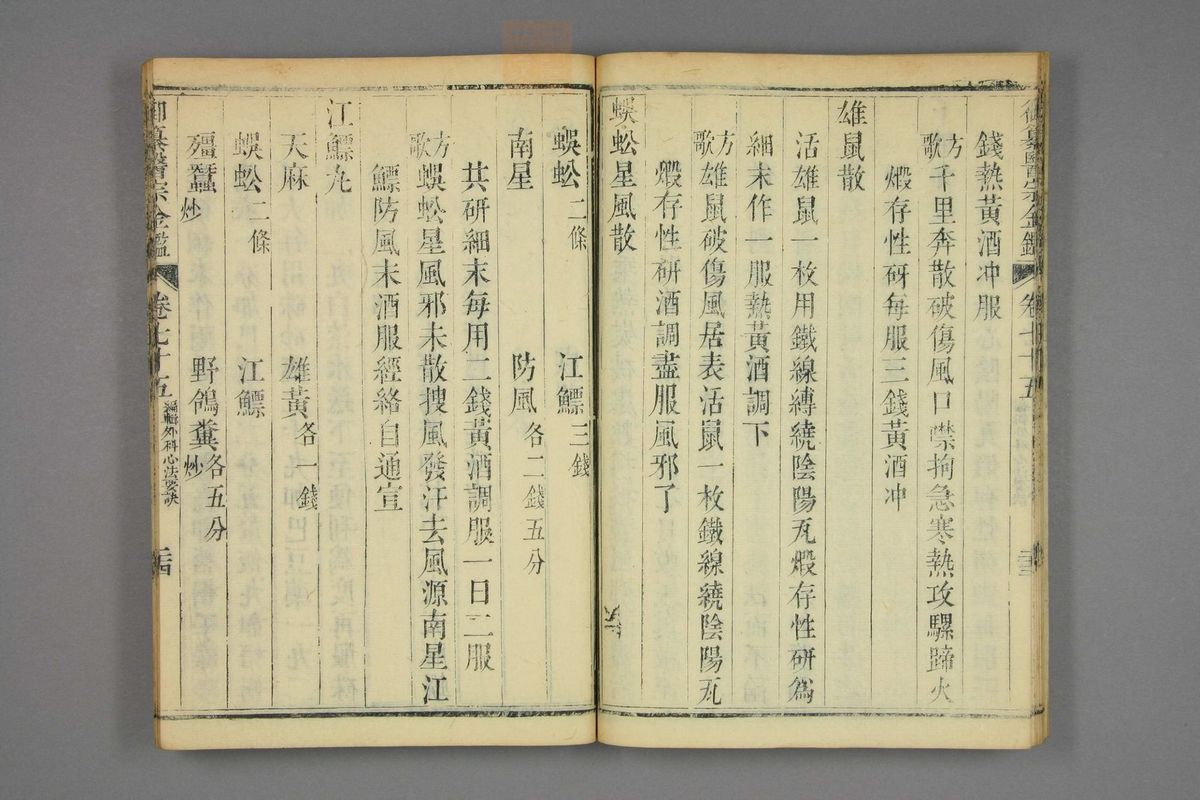 御纂醫宗金鑑 卷七十五
錢熱黃酒冲服
方歌 千里奔散破傷風口噤拘急寒熱攻騾蹄火
煅存性研每服三錢黃酒冲
雄鼠散
活雄鼠一枚用鐵線縛繞陰陽瓦煅存性研爲
細末作一服熱黃酒調下
方歌 雄鼠破傷風居表活鼠一枚鐵線繞陰陽瓦
煅存性研酒調盡服風邪了
蜈蚣星風散
蜈蚣二條 江鰾三錢
南星 防風各二錢五分
共研細末每用二錢黃酒調服一日二服
方歌 蜈蚣星風邪未散搜風發汗去風源南星江
鰾防風末酒服經絡自通宣
江鰾丸
天麻 雄黃各一錢
蜈蚣二條 江鰾
殭蠶炒 野鴿糞炒各五分
御纂醫宗金鑑 卷七十五 編輯外科心法要訣 二十四